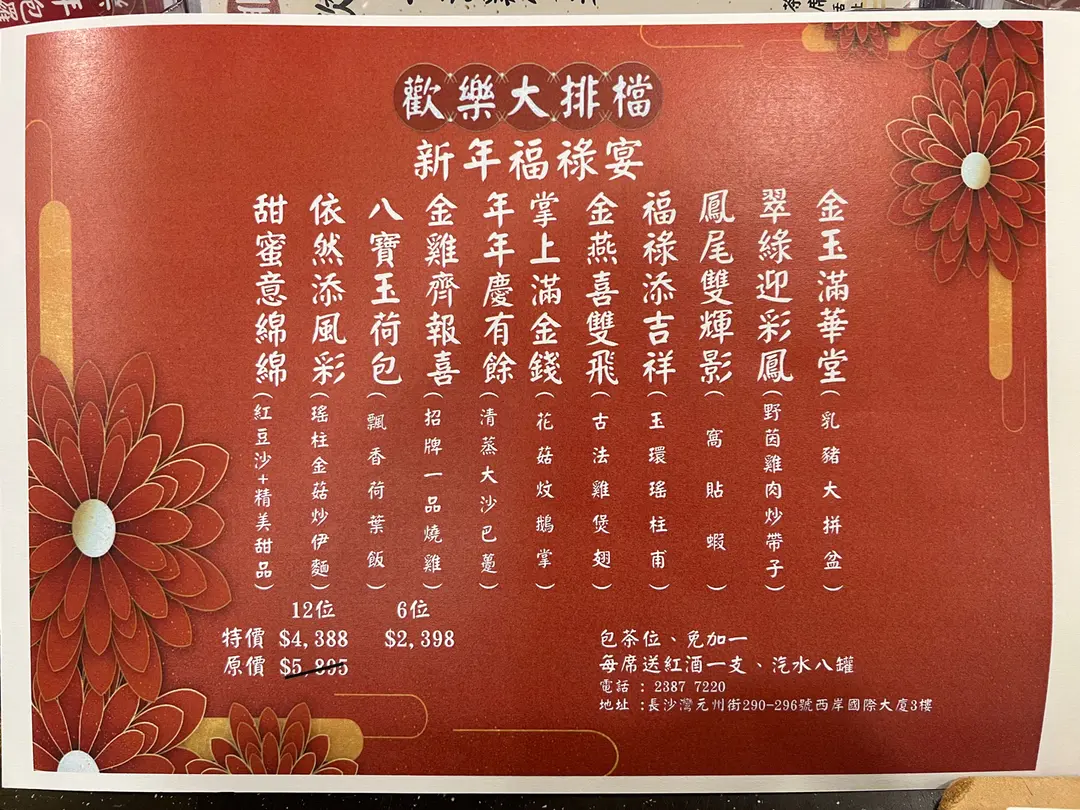 歡樂大排檔
新年福祿宴
金玉滿華堂(乳豬大拼盆)
翠綠迎彩鳳(野茵雞肉炒帶子)
鳳尾雙輝影(窩貼蝦)
福祿添吉祥(玉環瑤柱甫)
金燕喜雙飛(古法雞煲翅)
掌上滿金錢(花菇炆鵝掌)
年年慶有餘(清蒸大沙巴躉)
金雞齊報喜(招牌一品燒雞)
八寶玉荷包(飄香荷葉飯)
依然添風彩(瑤柱金菇炒伊麵)
甜蜜意綿綿(紅豆沙+精美甜品)
12位 6位
特價 $4,388 $2,398
原價 $5,895
包茶位、免加一
每席送紅酒一支、汽水八罐
電話 : 2387 7220
地址 :長沙灣元州街290-296號西岸國際大廈3樓